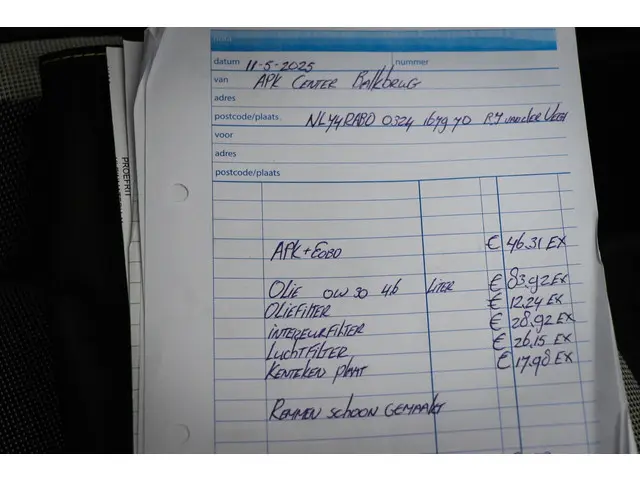 datum 11-5-2025 nummer
van APK CENTER Balkbrug
adres
postcode/plaats. NL44RABO 0324 1679 70 RJ van der Veen
voor
adres
postcode/plaats
APK+EOBD € 46.31 EX
OLIE 0W30 4.6 LITER € 83.92 EX
OLIEFILTER € 12.24 EX
INTERIEURFILTER € 28.92 EX
LUCHTFILTER € 26.15 EX
KENTEKEN PLAAT € 17.98 EX
REMMEN SCHOON GEMAAKT
PROEFRIT